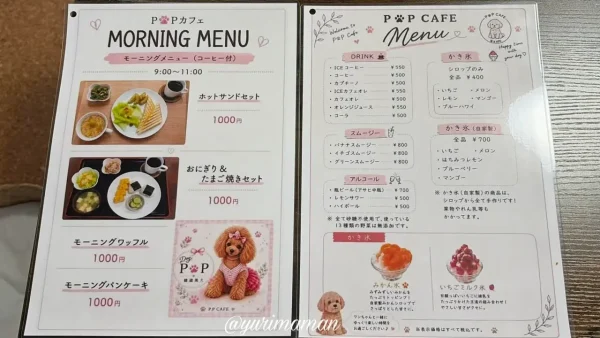 POPカフェ
MORNING MENU
モーニングメニュー（コーヒー付）
9:00〜11:00
ホットサンドセット
1000円
おにぎり＆
たまご焼きセット
1000円
モーニングワッフル
1000円
モーニングパンケーキ
1000円
Dog
POP
POP CAFE
Welcome to
POP Cafe
POP CAFE
Menu
POP CAFE
Happy time
with your dog♡
DRINK
・ICEコーヒー ￥550
・コーヒー ￥500
・カプチーノ ￥550
・ICEカフェオレ ￥550
・カフェオレ ￥550
・オレンジジュース ￥550
・コーラ ￥500
スムージー
・バナナスムージー ￥800
・イチゴスムージー ￥800
・グリーンスムージー ￥800
アルコール
・瓶ビール（アサヒ中瓶） ￥700
・レモンサワー ￥500
・ハイボール ￥500
※ 全て砂糖不使用で、使っている
13種類の野菜は無添加です。
かき氷
シロップのみ
全品 ￥400
・いちご ・メロン
・レモン ・マンゴー
・ブルーハワイ
かき氷（自家製）
全品 ￥700
・いちご ・メロン
・はちみつレモン
・ブルーベリー
・マンゴー
※ かき氷（自家製）の商品は、
シロップから全て手作りです！
果物やれん乳等も
かかってます。
かき氷
みかん氷
みずみずしいみかんを
たっぷりトッピング！
いちごミルク氷
ワンちゃんと一緒に
ゆっくり楽しい時間を
お過ごしください♪
@yurimaman